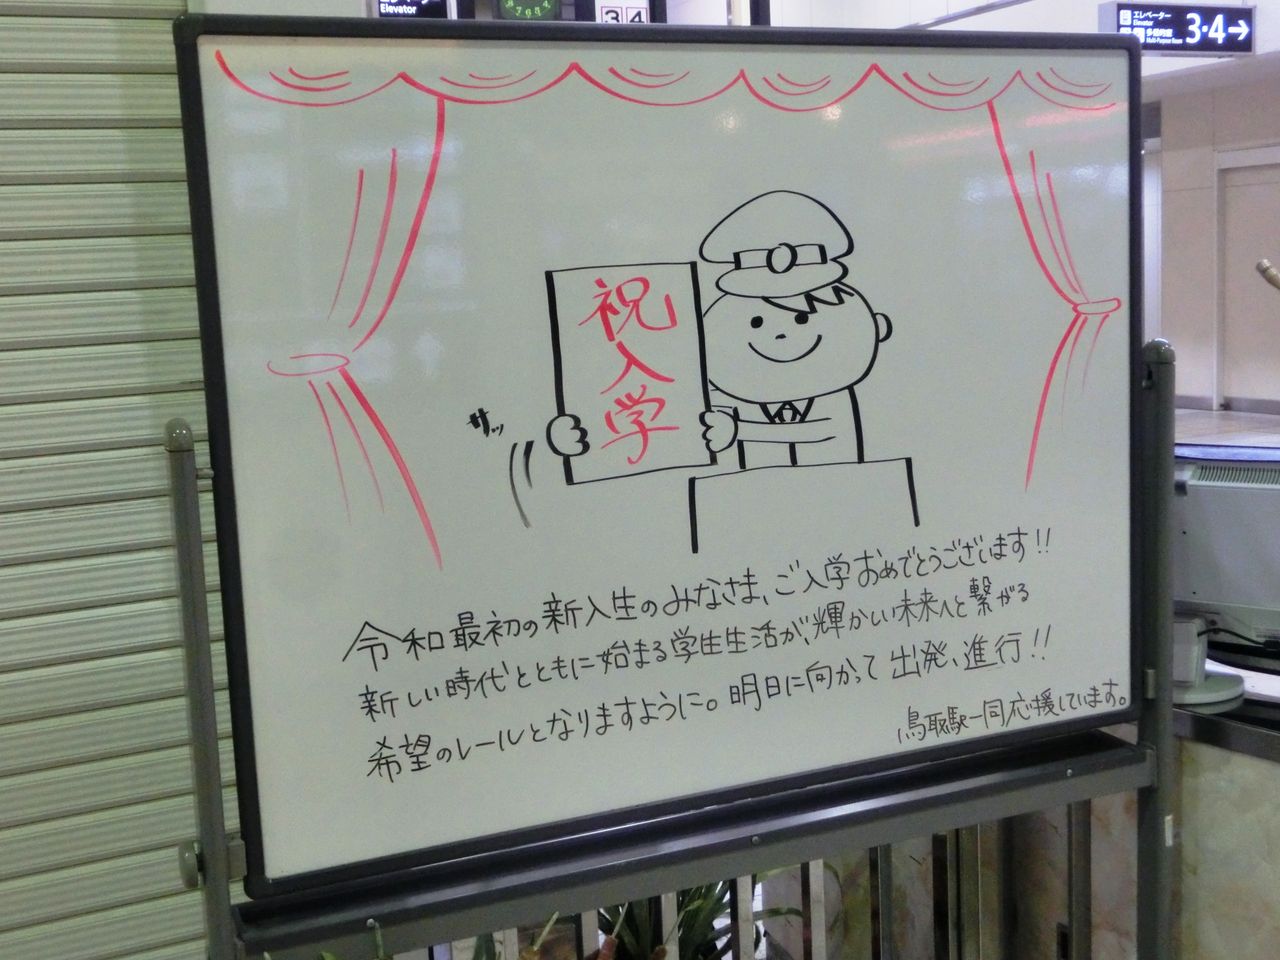 Elevator
3 4
エレベーター
Elevator
多目的室
Multi-Purpose Room
3・4→
祝入学
サッ
令和最初の新入生のみなさま、ご入学おめでとうございます!!
新しい時代とともに始まる学生生活が、輝かしい未来へと繋がる
希望のレールとなりますように。明日に向かって出発、進行!!
鳥取駅一同応援しています。